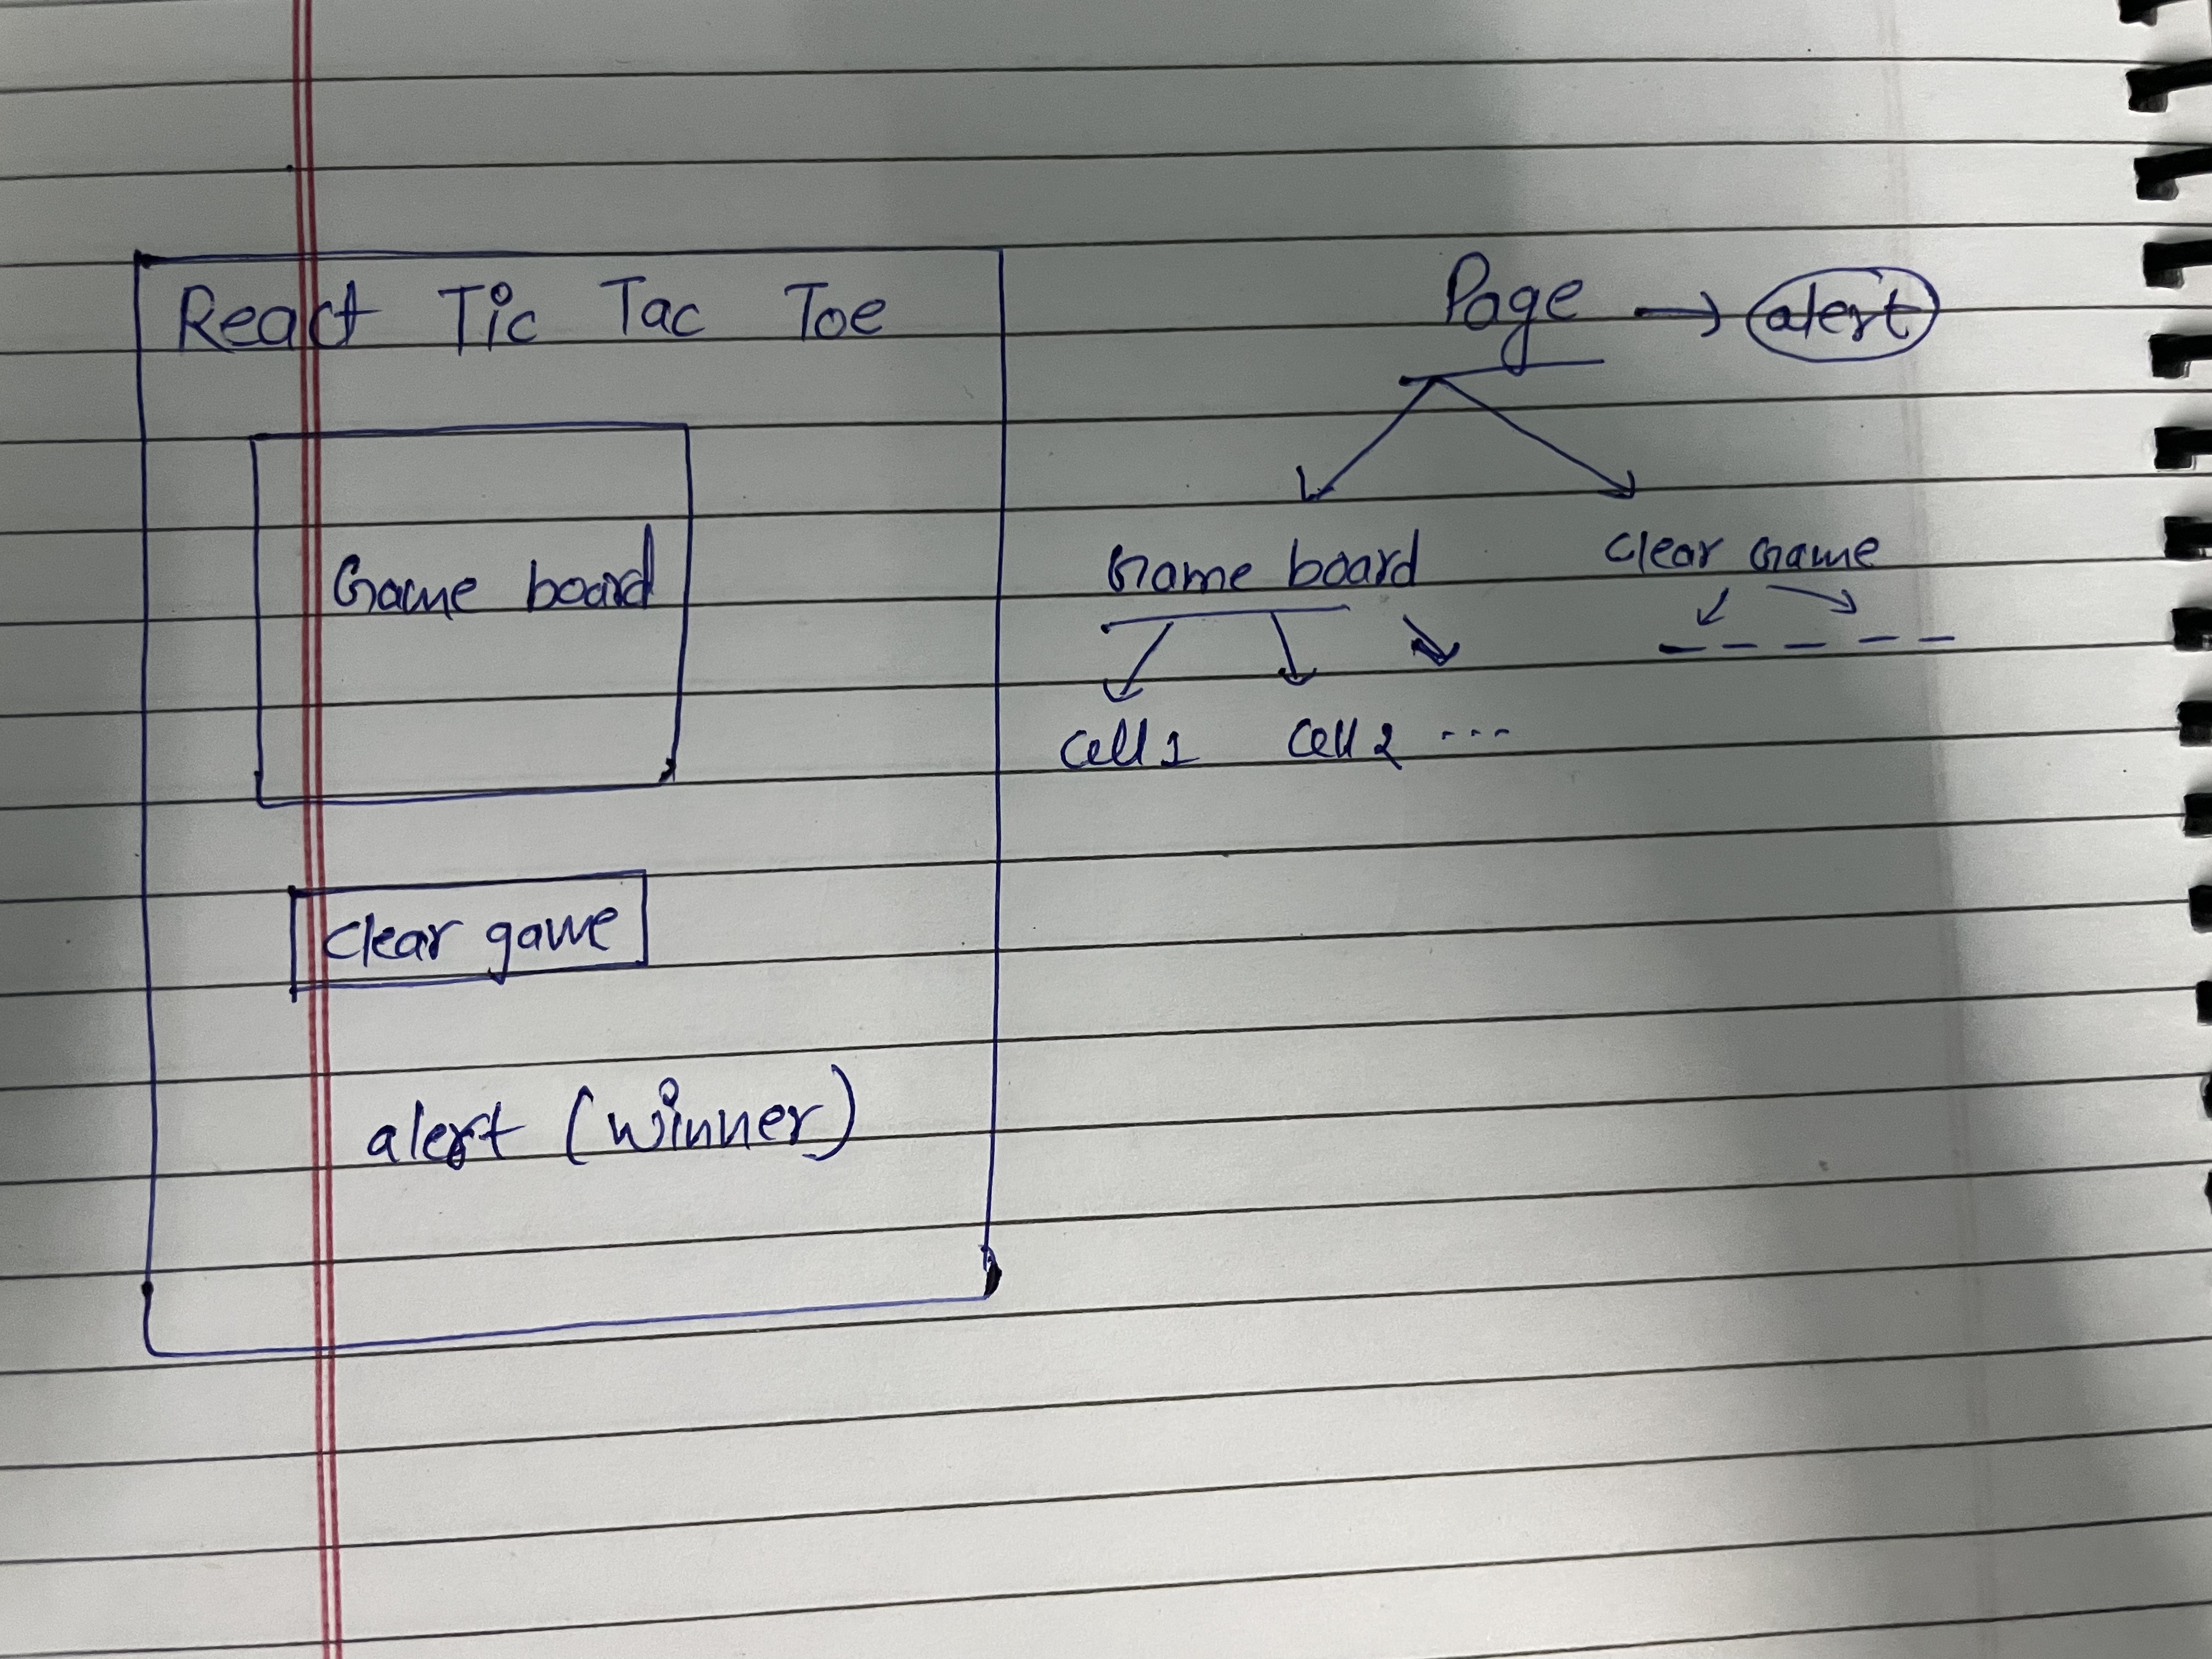 React Tic Tac Toe
Game board
Clear game
alert (winner)
Page → alert
Game board
Clear Game
Cell 1 Cell 2 ...